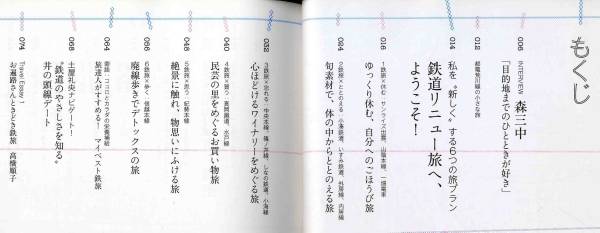 もくじ
006 INTERVIEW 森三中
「目的地までのひとときが好き」
012 都電荒川線の小さな旅
014 私を“新しく”する6つの旅プラン
鉄道リニュー旅へ、
ようこそ!
016 1鉄旅×休む サンライズ出雲、山陰本線、一畑電車
ゆっくり休む、自分へのごほうび旅
024 2鉄旅×ととのえる 小湊鐵道、いすみ鉄道、外房線、内房線
旬素材で、体の中からととのえる旅
032 3鉄旅×忘れる 中央本線、篠ノ井線、しなの鉄道、小海線
心ほどけるワイナリーをめぐる旅
040 4鉄旅×習う 真岡鐵道、水戸線
民芸の里をめぐるお買い物旅
048 5鉄旅×思う 紀勢本線
絶景に触れ、物思いにふける旅
056 6鉄旅×歩く 信越本線
廃線歩きでデトックスの旅
064 番外 ココロとカラダの栄養補給
旅達人がすすめる!マイベスト鉄旅
068 土屋礼央ナビゲート!
“鉄道のやさしさを知る”
井の頭線デート
074 Travel Essay 1
お遍路さんときどき鉄旅 高橋順子